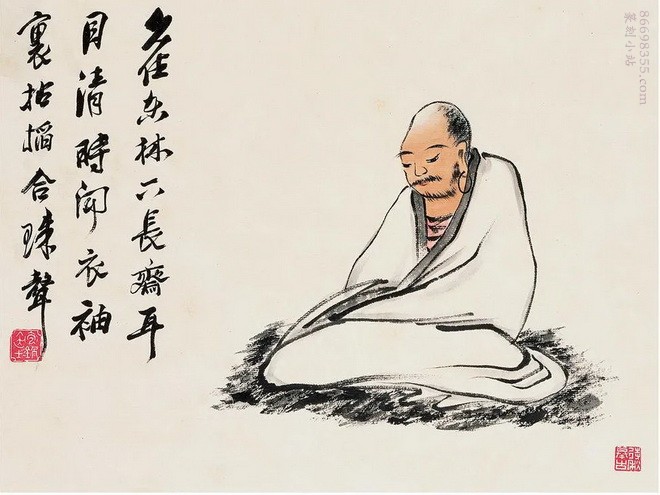 久住東林下長齋耳
目清時聞衣袖
裏拈搯合珠聲
86698355.com
篆刻小站